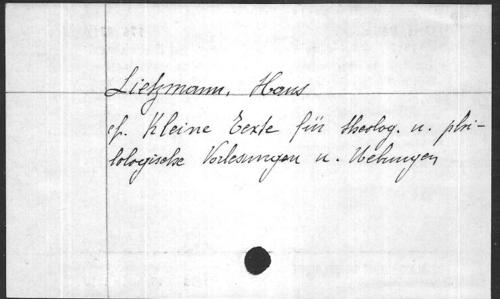 Lietzmann, Hans
cf. Kleine Texte für theolog. u. phi-
lologische Vorlesungen u. Uebungen